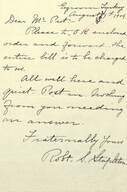 August 4th, 1904
Dear Mr Peet:
Please to O.K. enclosed
order and forward. The
entire bill is to be charged
to us.
All well here and
quiet. Post in
from you needing
an answer.
Fraternally Yours
Robt. S. Stapleton